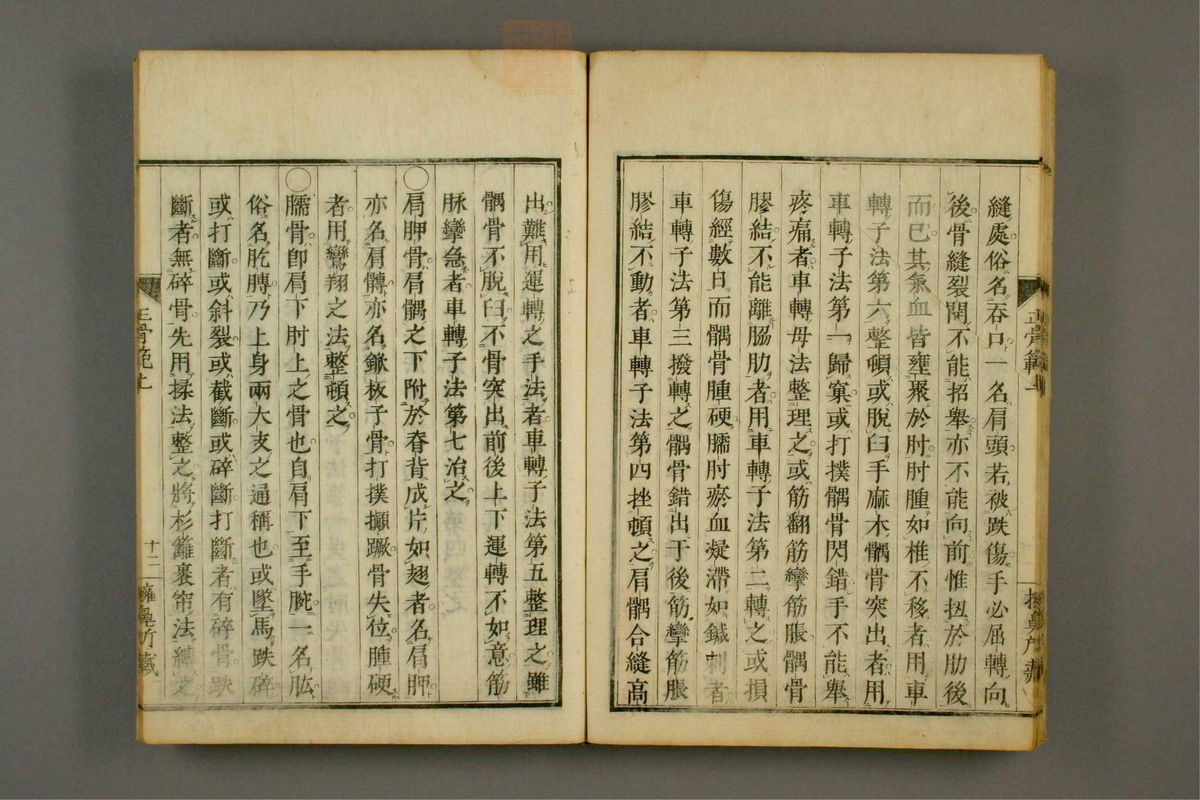 縫處俗名吞口一名肩頭若被跌傷手必屈轉向
後骨縫裂開不能招舉亦不能向前惟扭於肋後
而已其氣血皆壅聚於肘肘腫如椎不移者用車
轉子法第六整頓或脫臼手麻木髃骨突出者用
車轉子法第一歸窠或打撲髃骨閃錯手不能舉
疼痛者車轉母法整理之或筋翻筋攣筋脹髃骨
膠結不能離脇肋者用車轉子法第二轉之或損
傷經數日而髃骨腫硬臑肘瘀血凝滯如鍼刺者
車轉子法第三撥轉之髃骨錯出于後筋攣筋脹
膠結不動者車轉子法第四挫頓之肩髃合縫高
出難用運轉之手法者車轉子法第五整理之雖
髃骨不脫臼不骨突出前後上下運轉不如意筋
脉攣急者車轉子法第七治之
○肩胛骨肩髃之下附於脊背成片如翅者名肩胛
亦名肩髆亦名鍁板子骨打撲攧蹶骨失位腫硬
者用鸞翔之法整頓之
○臑骨卽肩下肘上之骨也自肩下至手腕一名肱
俗名肐膊乃上身兩大支之通稱也或墜馬跌碎
或打斷或斜裂或截斷或碎斷打斷者有碎骨跌
斷者無碎骨先用揉法整之將杉籬裹帘法縛之
正骨範上
十二
擁鼻所藏